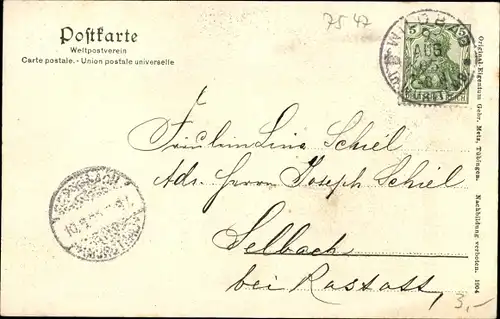 75 47
Postkarte
Weltpostverein
Carte postale. - Union postale universelle
WILDBAD
AUG
5
Fräulein Lina Schiel
Adr. Herrn Joseph Schiel
Selbach
bei Rastatt,
3,-
Original-Eigentum Gebr. Metz, Tübingen. Nachbildung verboten. 1904